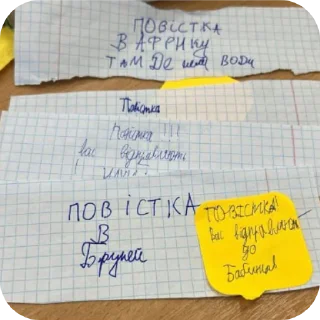 ПОВІСТКА
В АФРИКУ
ТАМ ДЕ нема ВОДИ
Повістка
Повістка !!!
Вас відправляють
ПОВІСТКА
В
Бруней
ПОВІСТКА!
Вас відправляють
до